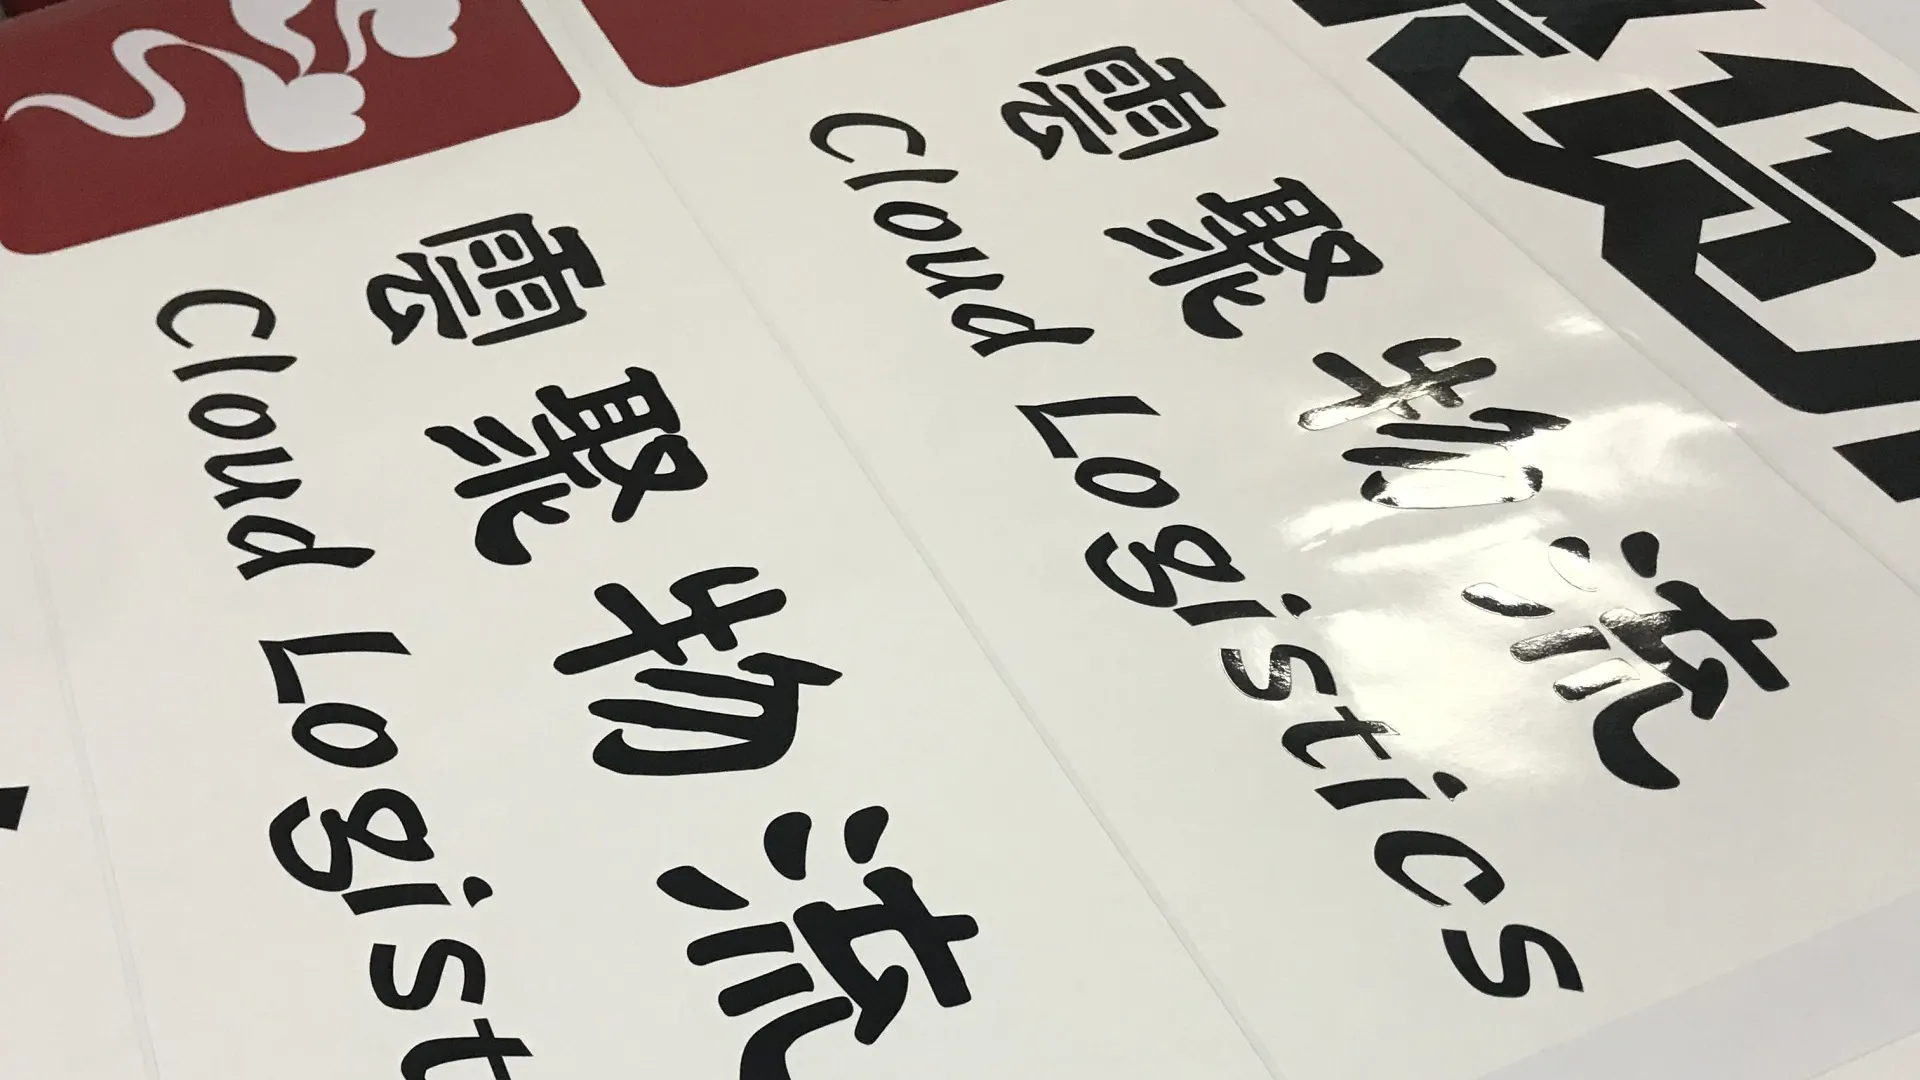 雲聚物流
Cloud Logistics
雲聚物流
Cloud Logist